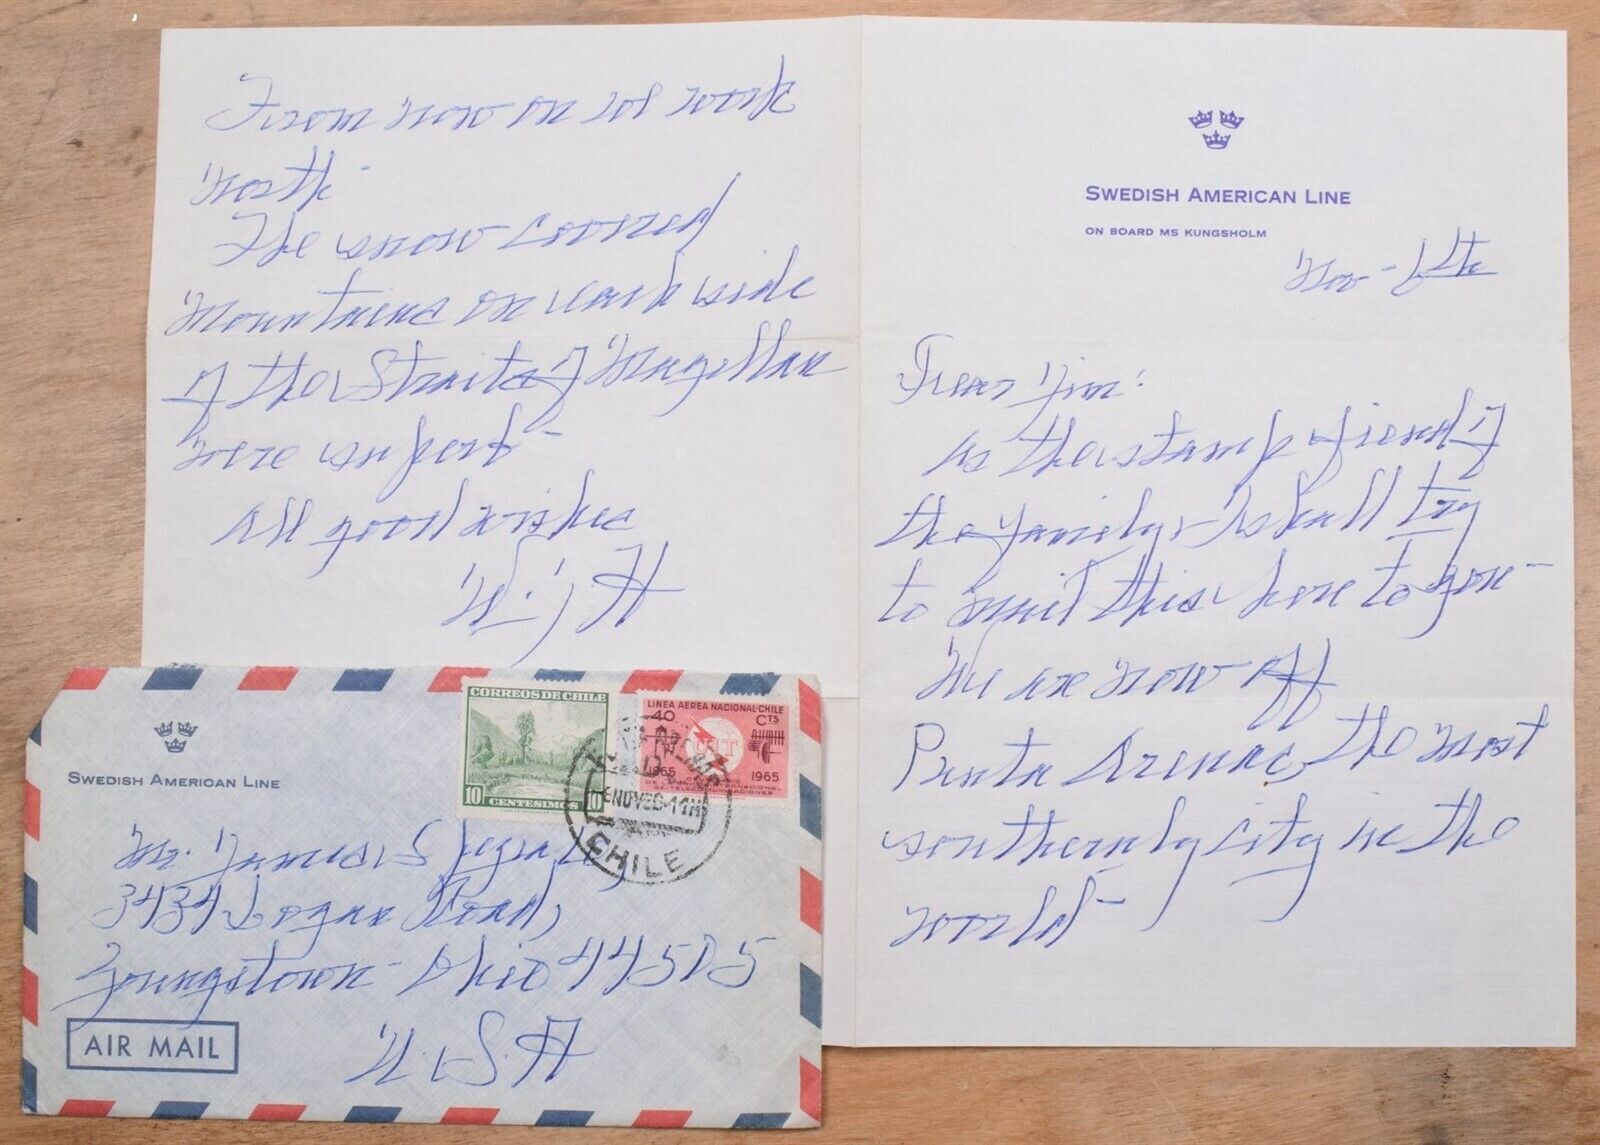 SWEDISH AMERICAN LINE
ON BOARD MS KUNGSHOLM
Nov-6th
Dear Jim:
As the stamp friend of
the family, I shall try
to mail this here to you-
We are now off
Punta Arenas, the most
southernly city in the
world-
From now on we work
north-
The snow covered
mountains on each side
of the Straits of Magellan
were superb-
All good wishes
W. J H
SWEDISH AMERICAN LINE
CORREOS DE CHILE
10 CENTESIMOS 10
LINEA AEREA NACIONAL-CHILE
40 CTS
UIT
1865 1965
DE TELECOMUNICACIONES
6 NOV 66-11H
CHILE
Mr. James S
3434 Logan Road,
Youngstown- Ohio 44505
U.S.A
AIR MAIL